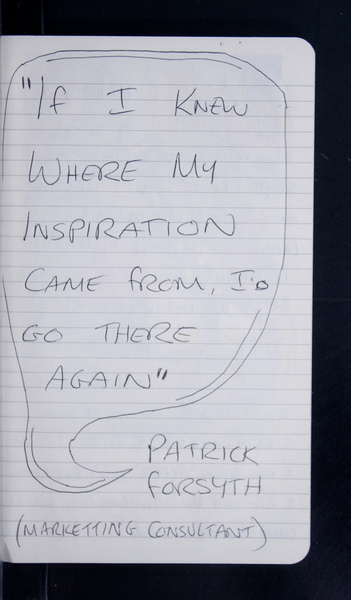 "If I KNEW
WHERE MY
INSPIRATION
CAME FROM, I'D
GO THERE
AGAIN"
PATRICK
FORSYTH
(MARKETTING CONSULTANT)